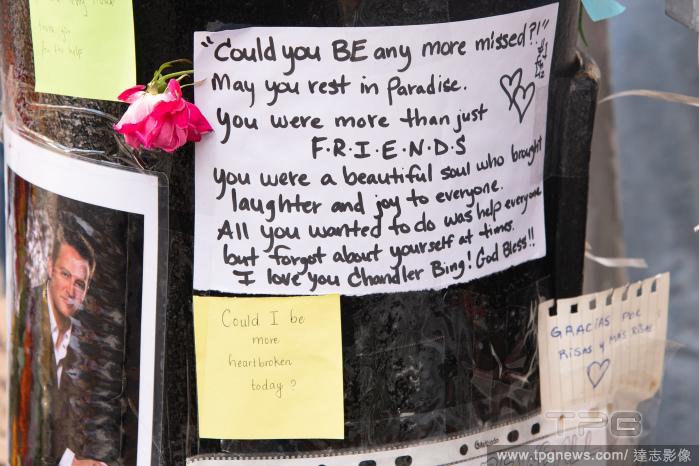 for the help
"Could you BE any more missed?!"
May you rest in Paradise.
You were more than just
F·R·I·E·N·D·S
you were a beautiful soul who brought
laughter and joy to everyone.
All you wanted to do was help everyone
but forgot about yourself at times.
I love you Chandler Bing! God Bless!!
Could I be
more
heartbroken
today?
GRACIAS POR
RISAS Y MÁS RISAS
TPG
www.tpgnews.com/ 達志影像